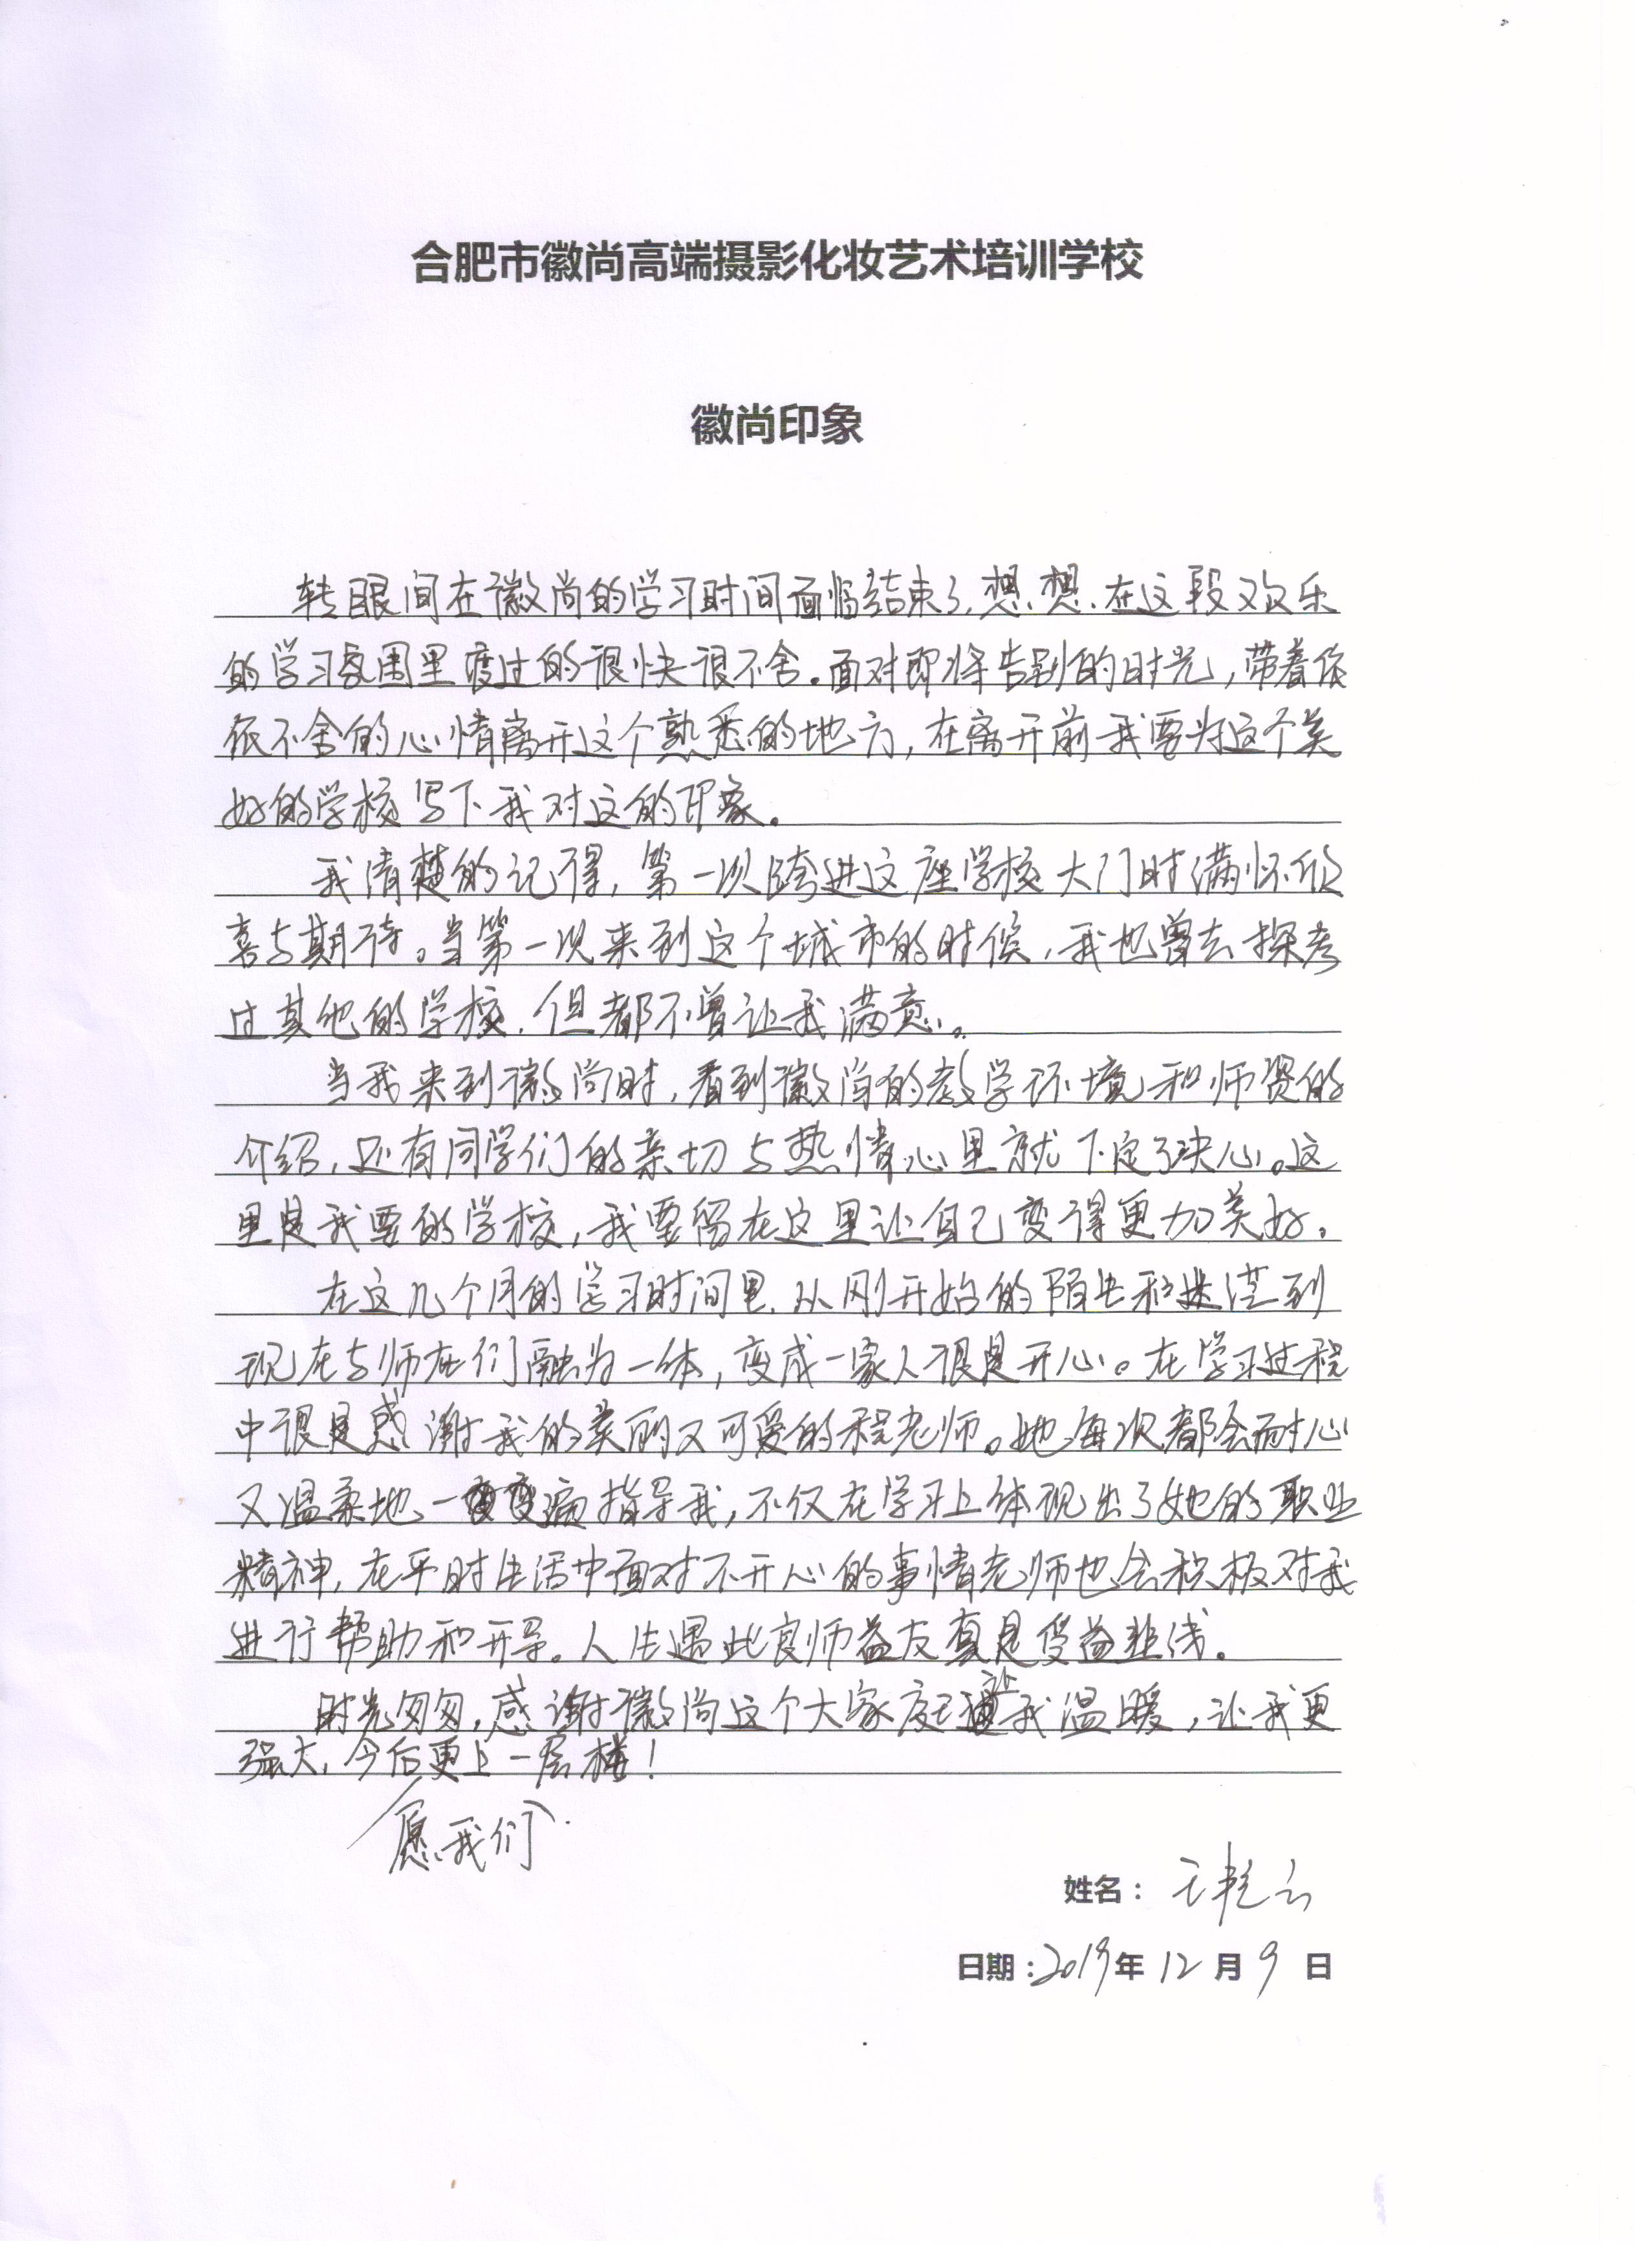 合肥市徽尚高端摄影化妆艺术培训学校
徽尚印象
转眼间在徽尚的学习时间面临结束了,想想在这段欢乐
的学习氛围里度过的很快很不舍。面对即将告别的时光,带着依
依不舍的心情离开这个熟悉的地方,在离开前我要为这个美
好的学校写下我对这的印象。
我清楚的记得,第一次跨进这座学校大门时满怀欣
喜与期待。当第一次来到这个城市的时候,我也曾去探考
过其他的学校,但都不曾让我满意。
当我来到徽尚时,看到徽尚的教学环境和师资的
介绍,还有同学们的亲切与热情心里就下定了决心。这
里是我要的学校,我要留在这里让自己变得更加美好。
在这几个月的学习时间里,从刚开始的陌生和迷茫到
现在与师在们融为一体,变成一家人很是开心。在学习过程
中很是感谢我的美丽又可爱的程老师。她每次都会耐心
又温柔地一遍遍指导我,不仅在学习上体现出了她的职业
精神,在平时生活中面对不开心的事情老师也会积极对我
进行帮助和开导。人生遇此良师益友真是受益匪浅。
时光匆匆,感谢徽尚这个大家庭让我温暖,让我更
强大,今后更上一层楼!
愿我们
姓名:王艳云
日期:2019年12月9日